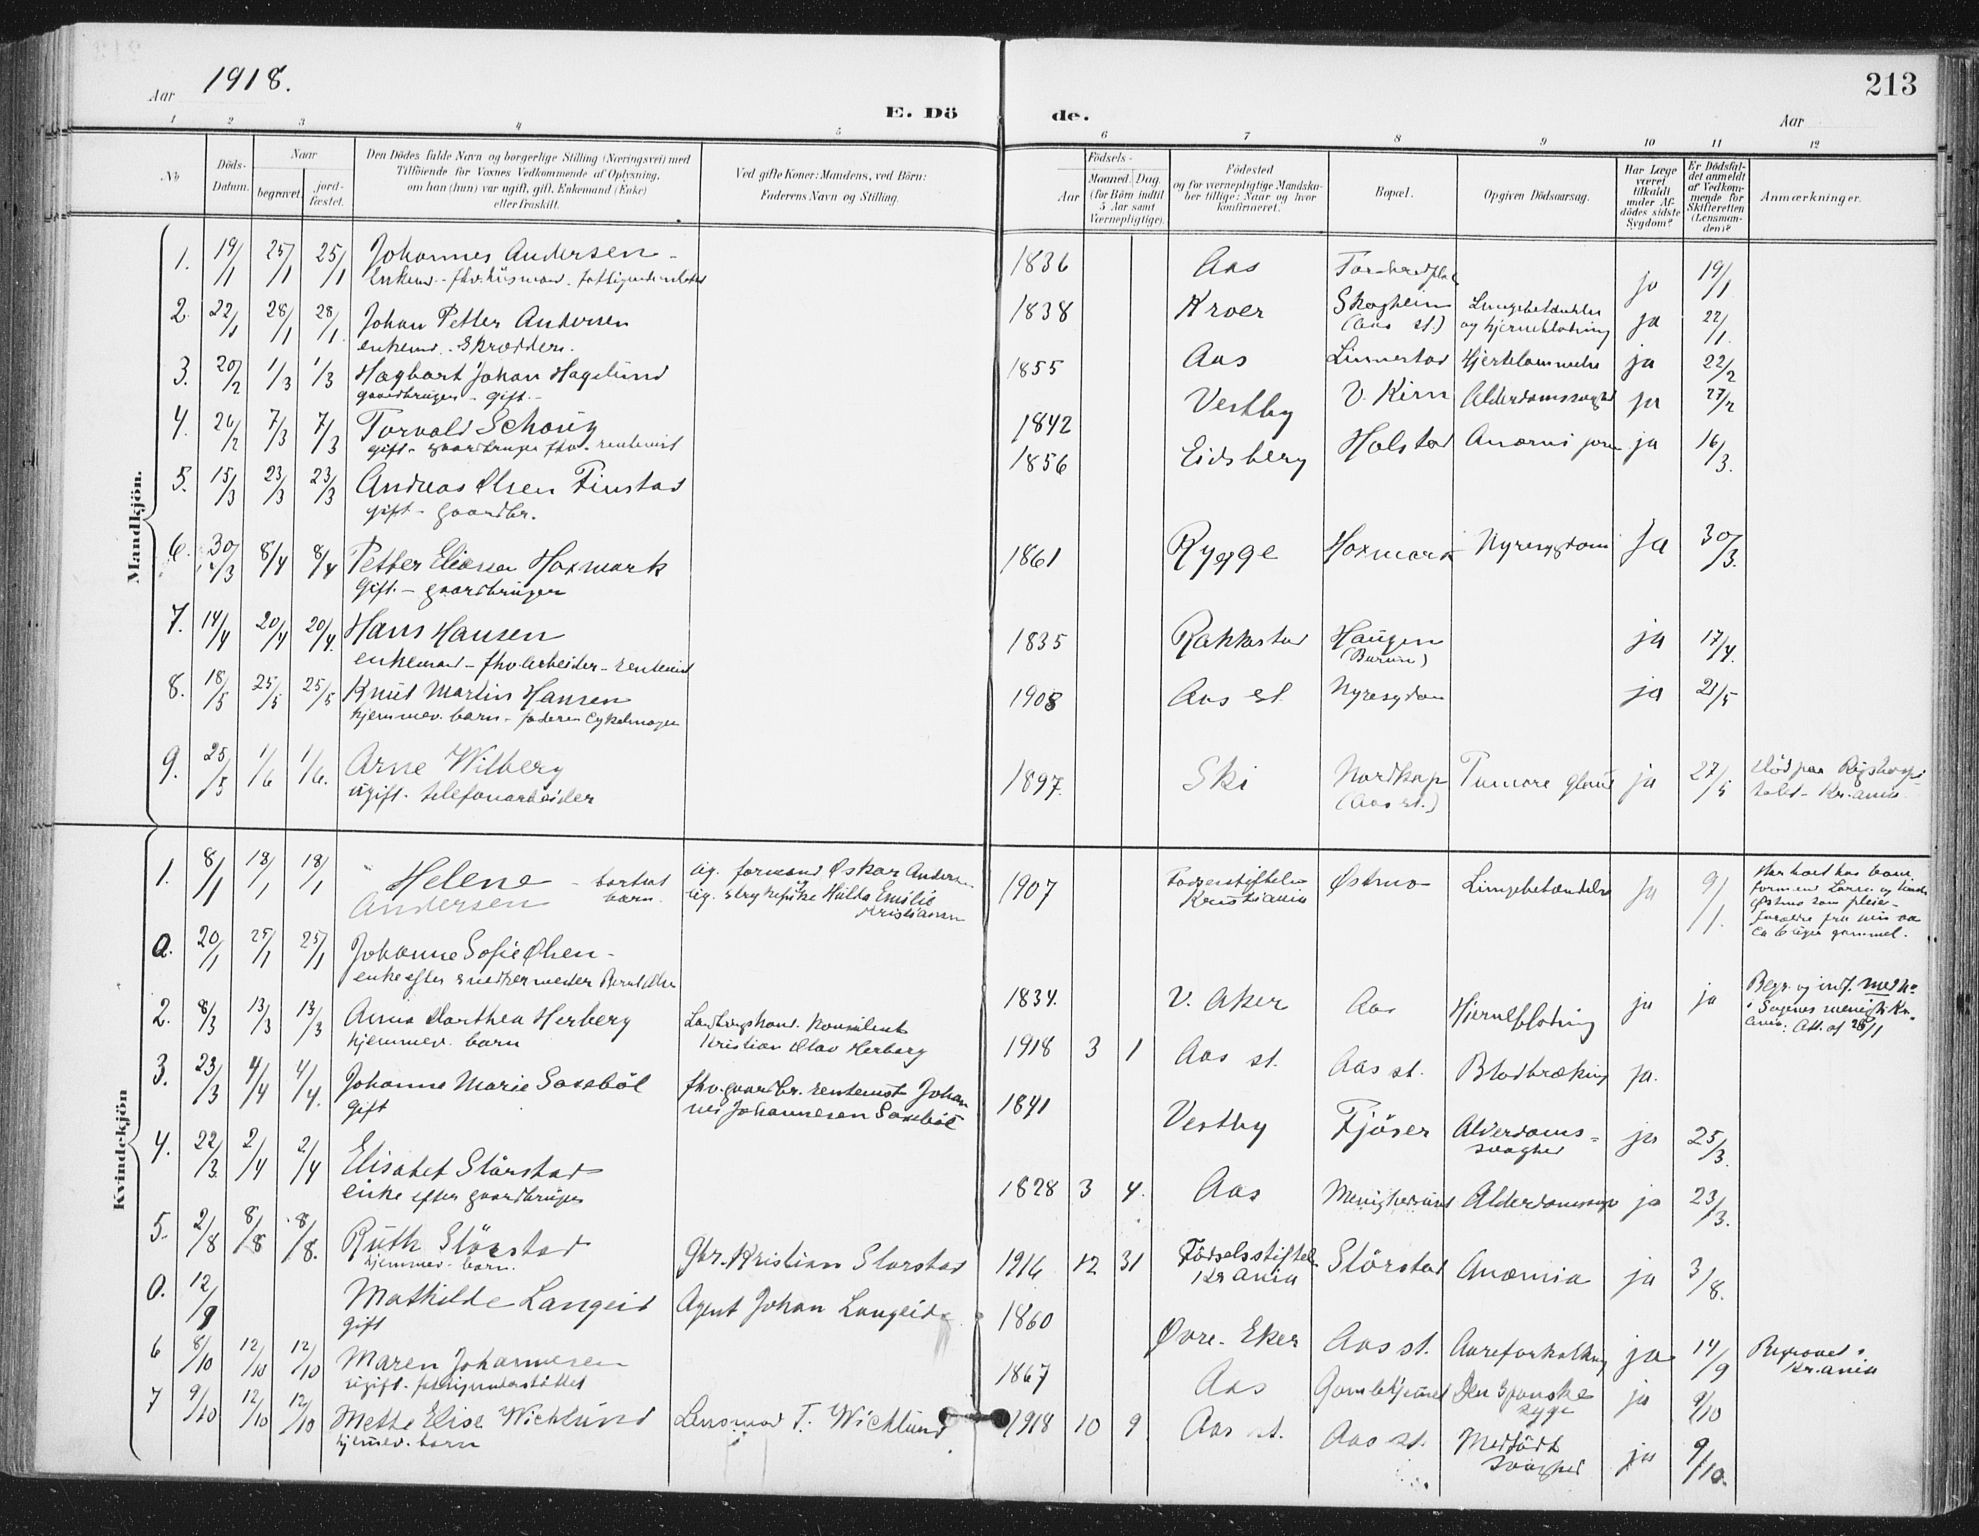 Aar 1918.
E. Dö
de.
Aar
213
1 2 3 4 5 6 7 8 9 10 11 12
No
Döds-
Datum.
Naar
begravet.
jord-
fæstet.
Den Dödes fulde Navn og borgerlige Stilling (Næringsvei) med
Tilföiende for Voxnes Vedkommende af Oplysning,
om han (hun) var ugift, gift, Enkemand (Enke)
eller fraskilt.
Ved gifte Koner: Mandens, ved Börn:
Faderens Navn og Stilling.
Födsels-
Aar
Maaned. Dag.
(for Börn indtil
5 Aar samt
Værnepligtige).
Födested
og for værnepligtige Mandska-
ber tillige: Naar og hvor
konfirmeret.
Bopæl.
Opgiven Dödsaarsag.
Har Læge
været
tilkaldt
under Af-
dödes sidste
Sygdom?
Er Dödsfal-
det anmeldt
af Vedkom-
mende for
Skifteretten
(Lensman-
den)?
Anmærkninger.
Mandkjön.
1. 19/1 25/1 25/1 Johannes Andersen 1836 Aas ja 19/1
2. 22/1 28/1 28/1 Johan Petter Andersen 1838 Kroer Skogheim Lungebetændelse ja 22/1
enkem. Skrædder. (Aas st.) og hjerneblødning
3. 20/2 1/3 1/3 Hagbart Johan Hagelund 1855 Aas Linnestad Hjertelammelse ja 22/2
gaardbruger - gift -
4. 26/2 7/3 7/3 Torvald Schouy 1842 Vestby V. Kirn Alderdomssvaghed ja 27/2
gift - gaardbruger fhv. rentenist
5. 15/3 23/3 23/3 Andreas Olsen Finstad 1856 Eidsberg Holstad ja 16/3.
gift - gaardbr.
6. 30/3 8/4 8/4 Petter Hoxmark 1861 Rygge Hoxmark Nyresygdom ja 30/3.
Gift. - gaardbruger
7. 14/4 20/4 20/4. Hans Hansen 1835 Rakkestad Haugen ja 17/4.
enkemand - fhv. arbeider - rentenist
8. 18/5 25/5 25/5 Knut Martin Hansen 1908 Aas st. Nyresygdom ja 21/5
hjemmev. barn - faderen Cykelmager
9. 25/5 1/6 1/6. Arne Wilberg 1897. Ski Nordkap ja 27/5 död paa Rigshospi-
ugift. telefonarbeider (Aas st.) talet - Kr.ania.
Kvindekjön
1. 8/1 18/1 18/1 Helene - bortsat ug. formand Oskar Andersen 1907 Födselsstiftelsen Østmo Lungebetændelse ja 9/1.
Andersen barn. ug. strykepike Hulda Emilie Kristiania
gammel.
0. 20/1 25/1 25/1 Johanne Sofie Olsen - 1834. V. Aker Aas Hjerneblødning ja ja
enke efter snedkermester Bernt Olsen
2. 8/3 13/3 13/3 Anna Dorthea Herberg 1918 3 1 Aas st. Aas st. Blodbrækning ja.
hjemmev. barn Kristian Olav Herberg
3. 23/3 4/4 4/4. Johanne Marie Saxeböl fhv. gaardbr. rentenist Johan- 1841 Vestby Fjöser Alderdoms- ja 25/3.
gift nes Johannesen Saxeböl svaghed
4. 22/3. 2/4 2/4 Elisabet Störstad 1828 3 4. Aas Alderdomssvaghed ja 23/3.
enke efter gaardbruger
5. 2/8 8/8 8/8. Ruth Störstad Gbr. Kristian Storstad 1916 12 31 Födselsstiftelsen Störstad Anæmia ja 3/8.
hjemmev. barn. Kr.ania
0. 12/9 Mathilde Langeid Agent Johan Langeid 1860 Øvre-Eker Aas st. Aareforkalkning ja 14/9 Begravet i
gift Kr.ania
6 8/10 12/10 12/10 Maren Johannesen 1867 Aas Gamlehjemmet Den Spanske ja 9/10
ugift. fattigunderstöttet syge
7 9/10 12/10 12/10 Mette Elise Wichlund Lensmand T. Wichlund 1918 10 9 Aas st. Aas st. Medfödt ja 9/10.
hjemmev. barn svaghed